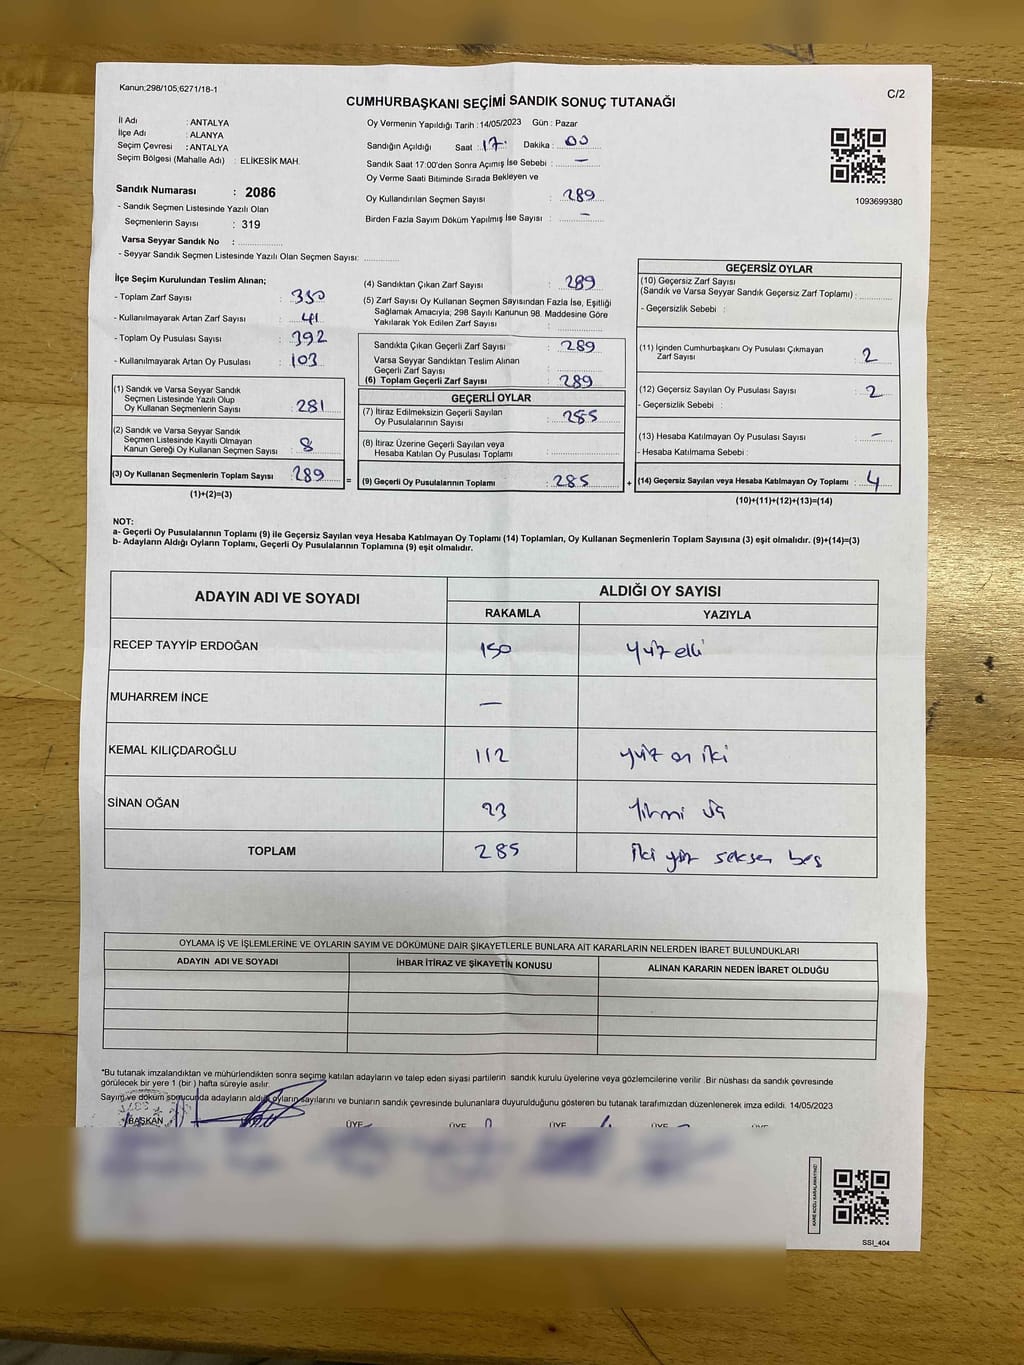 Kanun;298/105;6271/18-1
C/2
CUMHURBAŞKANI SEÇİMİ SANDIK SONUÇ TUTANAĞI
İl Adı : ANTALYA
İlçe Adı : ALANYA
Seçim Çevresi : ANTALYA
Seçim Bölgesi (Mahalle Adı) : ELİKESİK MAH.
Sandık Numarası : 2086
- Sandık Seçmen Listesinde Yazılı Olan
Seçmenlerin Sayısı : 319
Varsa Seyyar Sandık No :
- Seyyar Sandık Seçmen Listesinde Yazılı Olan Seçmen Sayısı:
Oy Vermenin Yapıldığı Tarih : 14/05/2023 Gün : Pazar
Sandığın Açıldığı Saat : 17: Dakika : 00
Sandık Saat 17:00'den Sonra Açımış İse Sebebi : —
Oy Verme Saati Bitiminde Sırada Bekleyen ve
Oy Kullandırılan Seçmen Sayısı : 289
Birden Fazla Sayım Döküm Yapılmış İse Sayısı : —
1093699380
İlçe Seçim Kurulundan Teslim Alınan;
- Toplam Zarf Sayısı : 330
- Kullanılmayarak Artan Zarf Sayısı : 41
- Toplam Oy Pusulası Sayısı : 392
- Kullanılmayarak Artan Oy Pusulası : 103
(1) Sandık ve Varsa Seyyar Sandık
Seçmen Listesinde Yazılı Olup
Oy Kullanan Seçmenlerin Sayısı : 281
(2) Sandık ve Varsa Seyyar Sandık
Seçmen Listesinde Kayıtlı Olmayan
Kanun Gereği Oy Kullanan Seçmen Sayısı : 8
(3) Oy Kullanan Seçmenlerin Toplam Sayısı : 289
(1)+(2)=(3)
(4) Sandıktan Çıkan Zarf Sayısı : 289
(5) Zarf Sayısı Oy Kullanan Seçmen Sayısından Fazla İse, Eşitliği
Sağlamak Amacıyla; 298 Sayılı Kanunun 98. Maddesine Göre
Yakılarak Yok Edilen Zarf Sayısı :
Sandıkta Çıkan Geçerli Zarf Sayısı : 289
Varsa Seyyar Sandıktan Teslim Alınan
Geçerli Zarf Sayısı :
(6) Toplam Geçerli Zarf Sayısı : 289
GEÇERLİ OYLAR
(7) İtiraz Edilmeksizin Geçerli Sayılan
Oy Pusulalarının Sayısı : 285
(8) İtiraz Üzerine Geçerli Sayılan veya
Hesaba Katılan Oy Pusulası Toplamı :
= (9) Geçerli Oy Pusulalarının Toplamı : 285
GEÇERSİZ OYLAR
(10) Geçersiz Zarf Sayısı
(Sandık ve Varsa Seyyar Sandık Geçersiz Zarf Toplamı) :
- Geçersizlik Sebebi :
(11) İçinden Cumhurbaşkanı Oy Pusulası Çıkmayan
Zarf Sayısı : 2
(12) Geçersiz Sayılan Oy Pusulası Sayısı : 2
- Geçersizlik Sebebi :
(13) Hesaba Katılmayan Oy Pusulası Sayısı : —
- Hesaba Katılmama Sebebi :
+ (14) Geçersiz Sayılan veya Hesaba Katılmayan Oy Toplamı : 4
(10)+(11)+(12)+(13)=(14)
NOT:
a- Geçerli Oy Pusulalarının Toplamı (9) ile Geçersiz Sayılan veya Hesaba Katılmayan Oy Toplamı (14) Toplamları, Oy Kullanan Seçmenlerin Toplam Sayısına (3) eşit olmalıdır. (9)+(14)=(3)
b- Adayların Aldığı Oyların Toplamı, Geçerli Oy Pusulalarının Toplamına (9) eşit olmalıdır.
ADAYIN ADI VE SOYADI
ALDIĞI OY SAYISI
RAKAMLA YAZIYLA
RECEP TAYYİP ERDOĞAN 150 yüz elli
MUHARREM İNCE —
KEMAL KILIÇDAROĞLU 112 yüz on iki
SİNAN OĞAN 23 yirmi üç
TOPLAM 285 iki yüz seksen beş
OYLAMA İŞ VE İŞLEMLERİNE VE OYLARIN SAYIM VE DÖKÜMÜNE DAİR ŞİKAYETLERLE BUNLARA AİT KARARLARIN NELERDEN İBARET BULUNDUKLARI
ADAYIN ADI VE SOYADI İHBAR İTİRAZ VE ŞİKAYETİN KONUSU ALINAN KARARIN NEDEN İBARET OLDUĞU
*Bu tutanak imzalandıktan ve mühürlendikten sonra seçime katılan adayların ve talep eden siyasi partilerin sandık kurulu üyelerine veya gözlemcilerine verilir .Bir nüshası da sandık çevresinde
görülecek bir yere 1 (bir ) hafta süreyle asılır.
Sayım ve döküm sonucunda adayların aldığı oyların sayılarını ve bunların sandık çevresinde bulunanlara duyurulduğunu gösteren bu tutanak tarafımızdan düzenlenerek imza edildi. 14/05/2023
BAŞKAN ÜYE ÜYE ÜYE ÜYE ÜYE
SSI_404